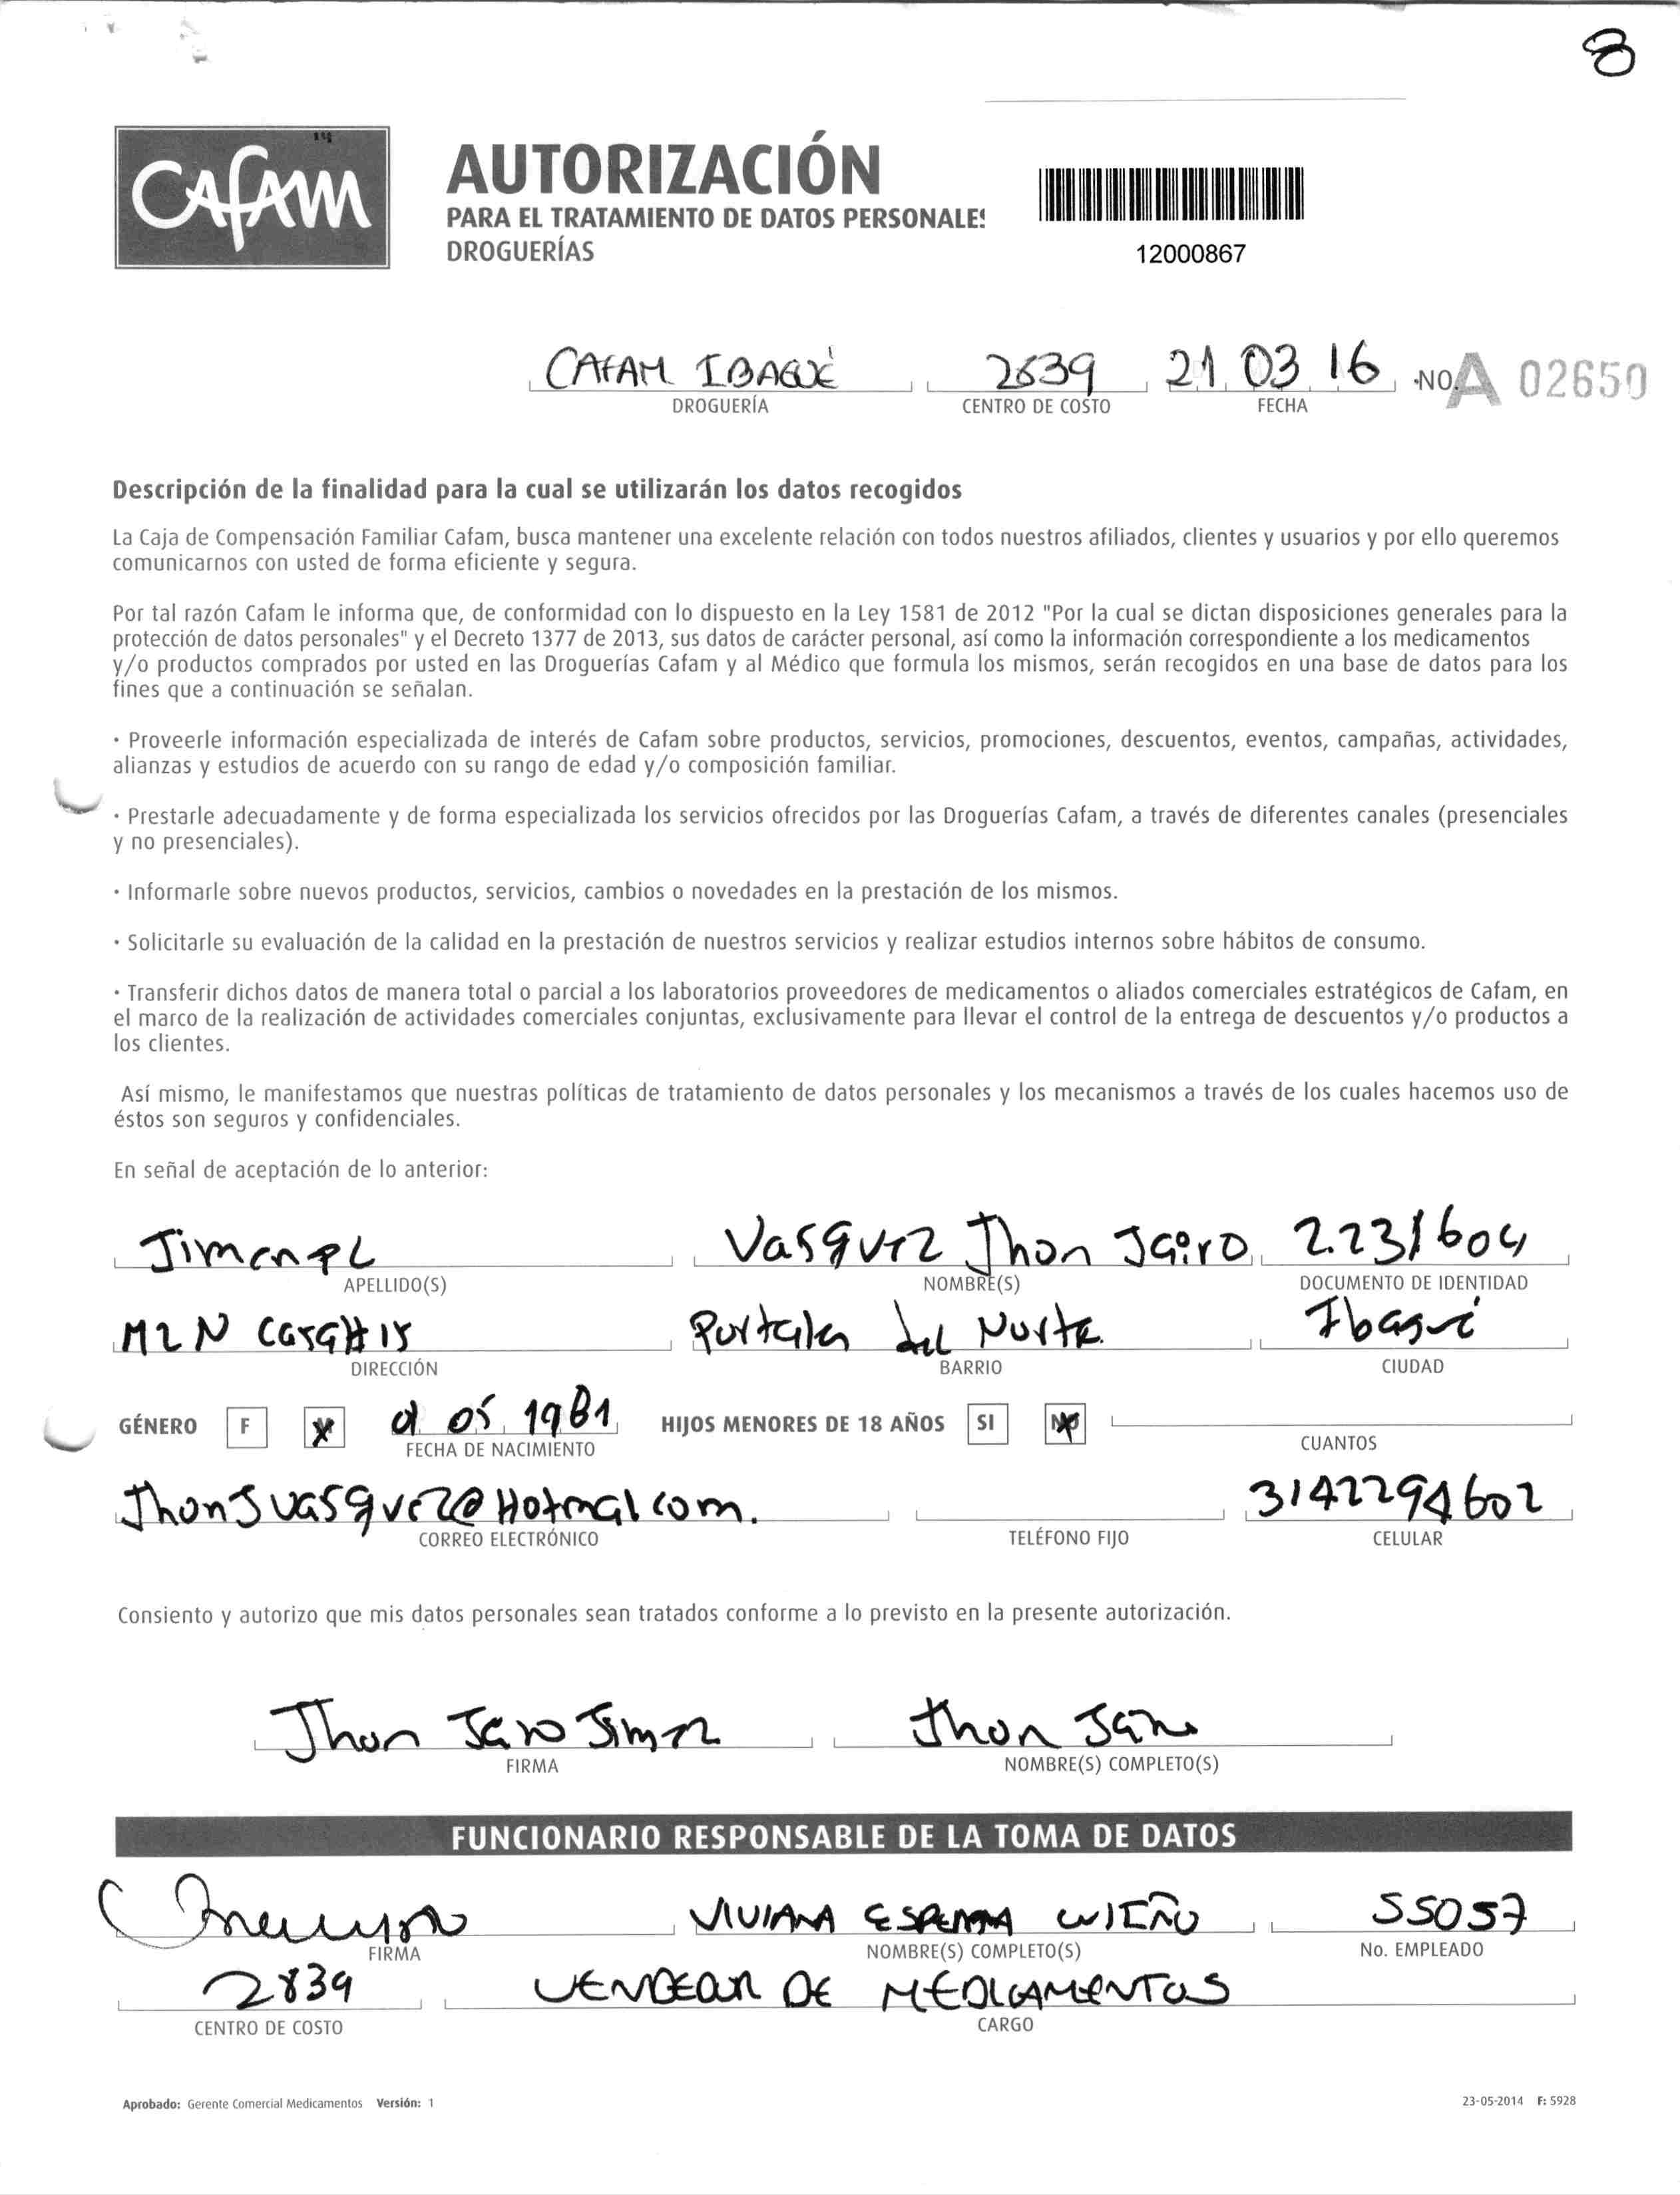 8
CAFAM
AUTORIZACIÓN
PARA EL TRATAMIENTO DE DATOS PERSONALES
DROGUERÍAS
12000867
CAFAM IBAGUÉ 2639 21 03 16 NO. A 02650
DROGUERÍA CENTRO DE COSTO FECHA
Descripción de la finalidad para la cual se utilizarán los datos recogidos
La Caja de Compensación Familiar Cafam, busca mantener una excelente relación con todos nuestros afiliados, clientes y usuarios y por ello queremos
comunicarnos con usted de forma eficiente y segura.
Por tal razón Cafam le informa que, de conformidad con lo dispuesto en la Ley 1581 de 2012 "Por la cual se dictan disposiciones generales para la
protección de datos personales" y el Decreto 1377 de 2013, sus datos de carácter personal, así como la información correspondiente a los medicamentos
y/o productos comprados por usted en las Droguerías Cafam y al Médico que formula los mismos, serán recogidos en una base de datos para los
fines que a continuación se señalan.
• Proveerle información especializada de interés de Cafam sobre productos, servicios, promociones, descuentos, eventos, campañas, actividades,
alianzas y estudios de acuerdo con su rango de edad y/o composición familiar.
• Prestarle adecuadamente y de forma especializada los servicios ofrecidos por las Droguerías Cafam, a través de diferentes canales (presenciales
y no presenciales).
• Informarle sobre nuevos productos, servicios, cambios o novedades en la prestación de los mismos.
• Solicitarle su evaluación de la calidad en la prestación de nuestros servicios y realizar estudios internos sobre hábitos de consumo.
• Transferir dichos datos de manera total o parcial a los laboratorios proveedores de medicamentos o aliados comerciales estratégicos de Cafam, en
el marco de la realización de actividades comerciales conjuntas, exclusivamente para llevar el control de la entrega de descuentos y/o productos a
los clientes.
Así mismo, le manifestamos que nuestras políticas de tratamiento de datos personales y los mecanismos a través de los cuales hacemos uso de
éstos son seguros y confidenciales.
En señal de aceptación de lo anterior:
Vasquez Jhon Jairo 2.231604
APELLIDO(S) NOMBRE(S) DOCUMENTO DE IDENTIDAD
MZ N casa # 15 Portales del Norte Ibagué
DIRECCIÓN BARRIO CIUDAD
GÉNERO F 01 05 1981 HIJOS MENORES DE 18 AÑOS SI NO
FECHA DE NACIMIENTO CUANTOS
JhonJvasquez@Hotmal com. 3142294602
CORREO ELECTRÓNICO TELÉFONO FIJO CELULAR
Consiento y autorizo que mis datos personales sean tratados conforme a lo previsto en la presente autorización.
Jhon Jhon
FIRMA NOMBRE(S) COMPLETO(S)
FUNCIONARIO RESPONSABLE DE LA TOMA DE DATOS
VIVIANA 55057
FIRMA NOMBRE(S) COMPLETO(S) No. EMPLEADO
2839 DE MEDICAMENTOS
CENTRO DE COSTO CARGO
Aprobado: Gerente Comercial Medicamentos Versión: 1 23-05-2014 F: 5928